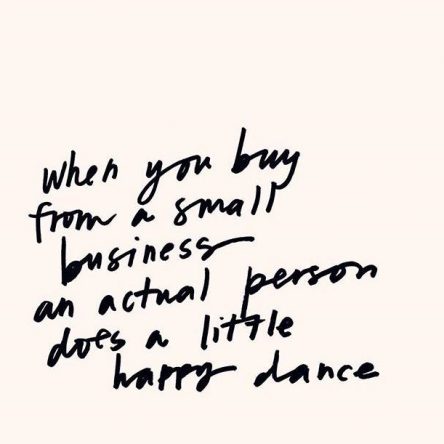 when you buy
from a small
business
an actual person
does a little
happy dance